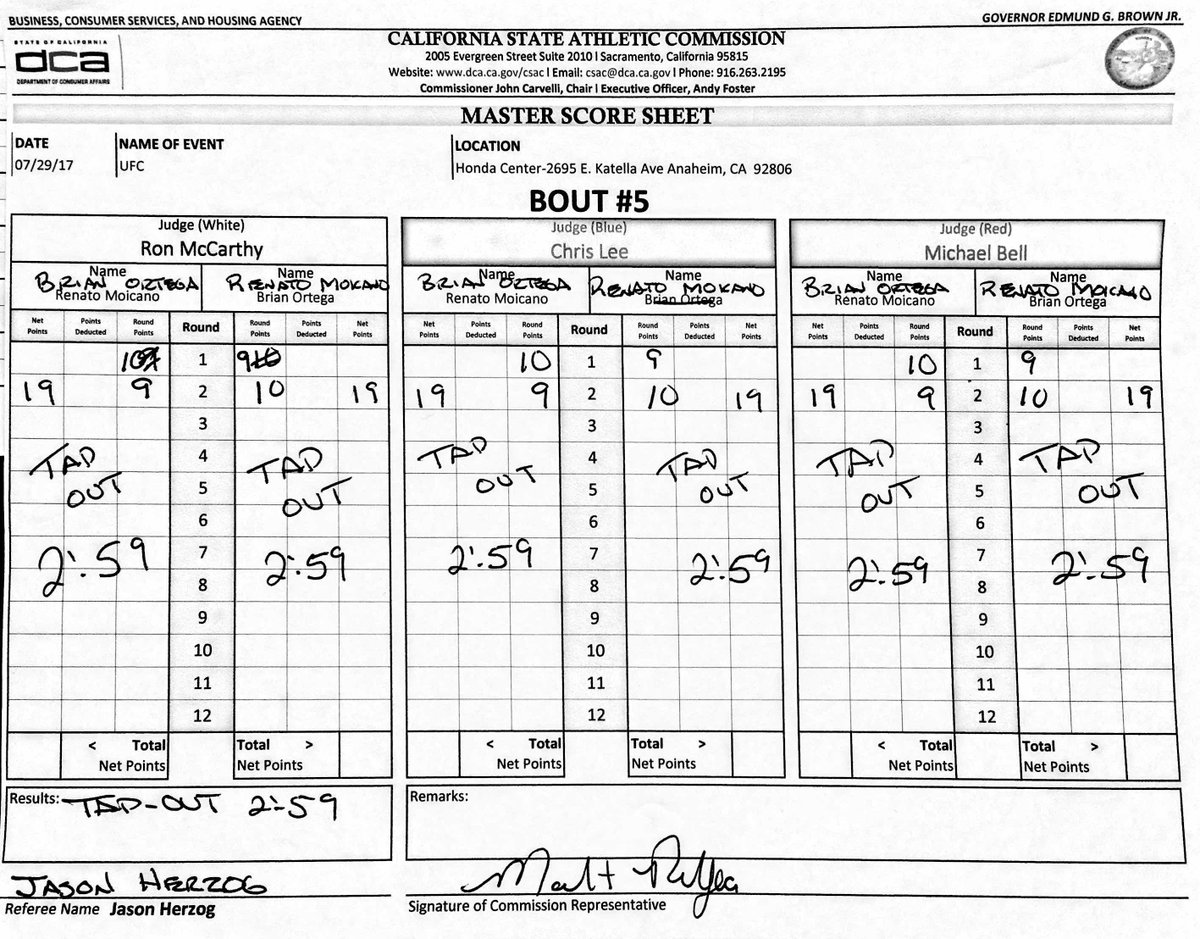 BUSINESS, CONSUMER SERVICES, AND HOUSING AGENCY
GOVERNOR EDMUND G. BROWN JR.
STATE OF CALIFORNIA
dca
DEPARTMENT OF CONSUMER AFFAIRS
CALIFORNIA STATE ATHLETIC COMMISSION
2005 Evergreen Street Suite 2010 | Sacramento, California 95815
Website: www.dca.ca.gov/csac | Email: csac@dca.ca.gov | Phone: 916.263.2195
Commissioner John Carvelli, Chair | Executive Officer, Andy Foster
MASTER SCORE SHEET
DATE
07/29/17
NAME OF EVENT
UFC
LOCATION
Honda Center-2695 E. Katella Ave Anaheim, CA 92806
BOUT #5
Judge (White)
Ron McCarthy
Name Name
BRIAN ORTEGA RENATO MOICANO
Renato Moicano Brian Ortega
Net Points Points Deducted Round Points Round Round Points Points Deducted Net Points
10 1 9
19 9 2 10 19
3
4
TAP OUT TAP OUT
5
6
7
2:59 2:59
8
9
10
11
12
< Total Net Points Total > Net Points
Judge (Blue)
Chris Lee
Name Name
BRIAN ORTEGA RENATO MOICANO
Renato Moicano Brian Ortega
Net Points Points Deducted Round Points Round Round Points Points Deducted Net Points
10 1 9
19 9 2 10 19
3
4
TAP OUT TAP OUT
5
6
7
2:59 2:59
8
9
10
11
12
< Total Net Points Total > Net Points
Judge (Red)
Michael Bell
Name Name
BRIAN ORTEGA RENATO MOICANO
Renato Moicano Brian Ortega
Net Points Points Deducted Round Points Round Round Points Points Deducted Net Points
10 1 9
19 9 2 10 19
3
4
TAP OUT TAP OUT
5
6
7
2:59 2:59
8
9
10
11
12
< Total Net Points Total > Net Points
Results: TAP-OUT 2:59
Remarks:
JASON HERZOG
Referee Name Jason Herzog
Signature of Commission Representative